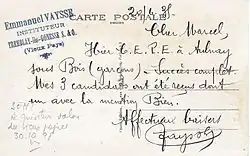 Emmanuel VAYSSE
INSTITUTEUR
TREMBLAY-lès-GONESSE S.-&-O.
(Vieux Pays)
CARTE POSTALE
Cher Marcel,
Hier C.E.P.E. à Aulnay
sous Bois (garçons) - Succès complet
Mes 3 candidats ont été reçus dont
un avec la mention Bien.
Affectueux baisers
vieux papiers
30.10